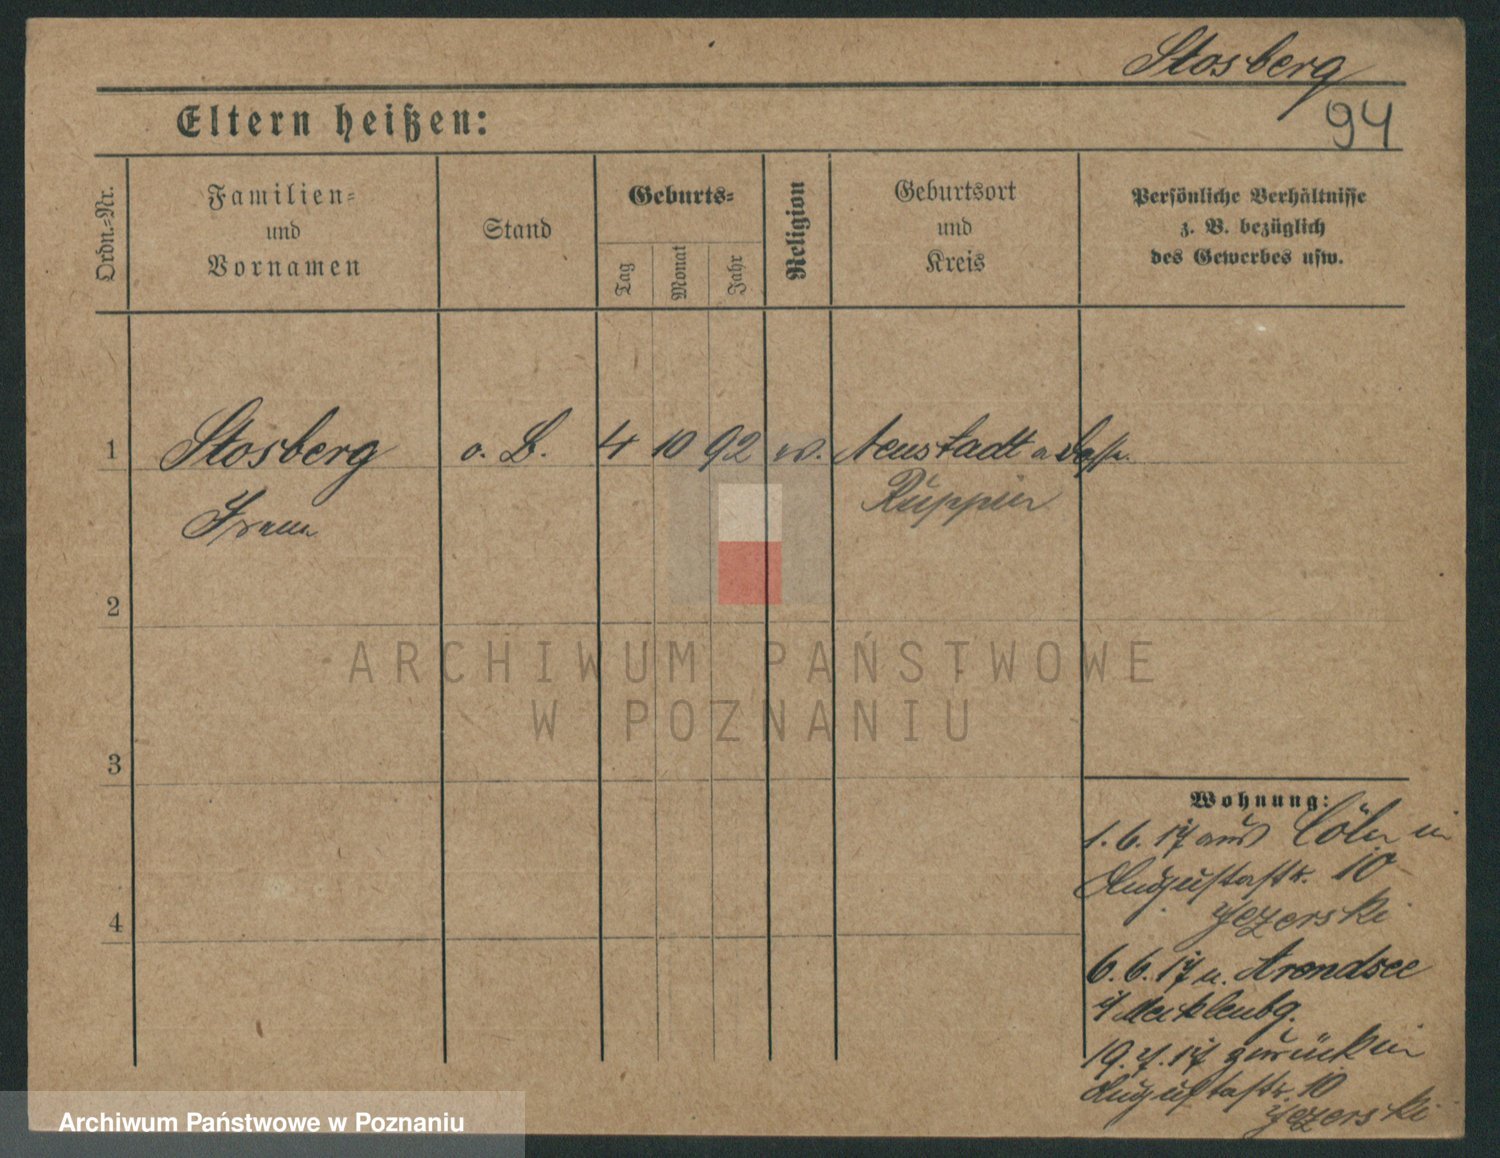 Stosberg
Eltern heißen:
94
Ordn.-Nr.
Familien-
und
Vornamen
Stand
Geburts-
Tag
Monat
Jahr
Religion
Geburtsort
und
Kreis
Persönliche Verhältnisse
z. B. bezüglich
des Gewerbes usw.
1
Stosberg
o. B.
4
10
92
ev.
Neustadt a
Irene
Ruppin
2
3
4
ARCHIWUM PAŃSTWOWE
W POZNANIU
Wohnung:
1. 6. 17 aus Cöln in
Augustastr. 10
Jezerski
6. 6. 17 n. Arendsee
i/ Mecklenbg.
19. 7. 17 zurück in
Augustastr. 10
Jezerski
Archiwum Państwowe w Poznaniu